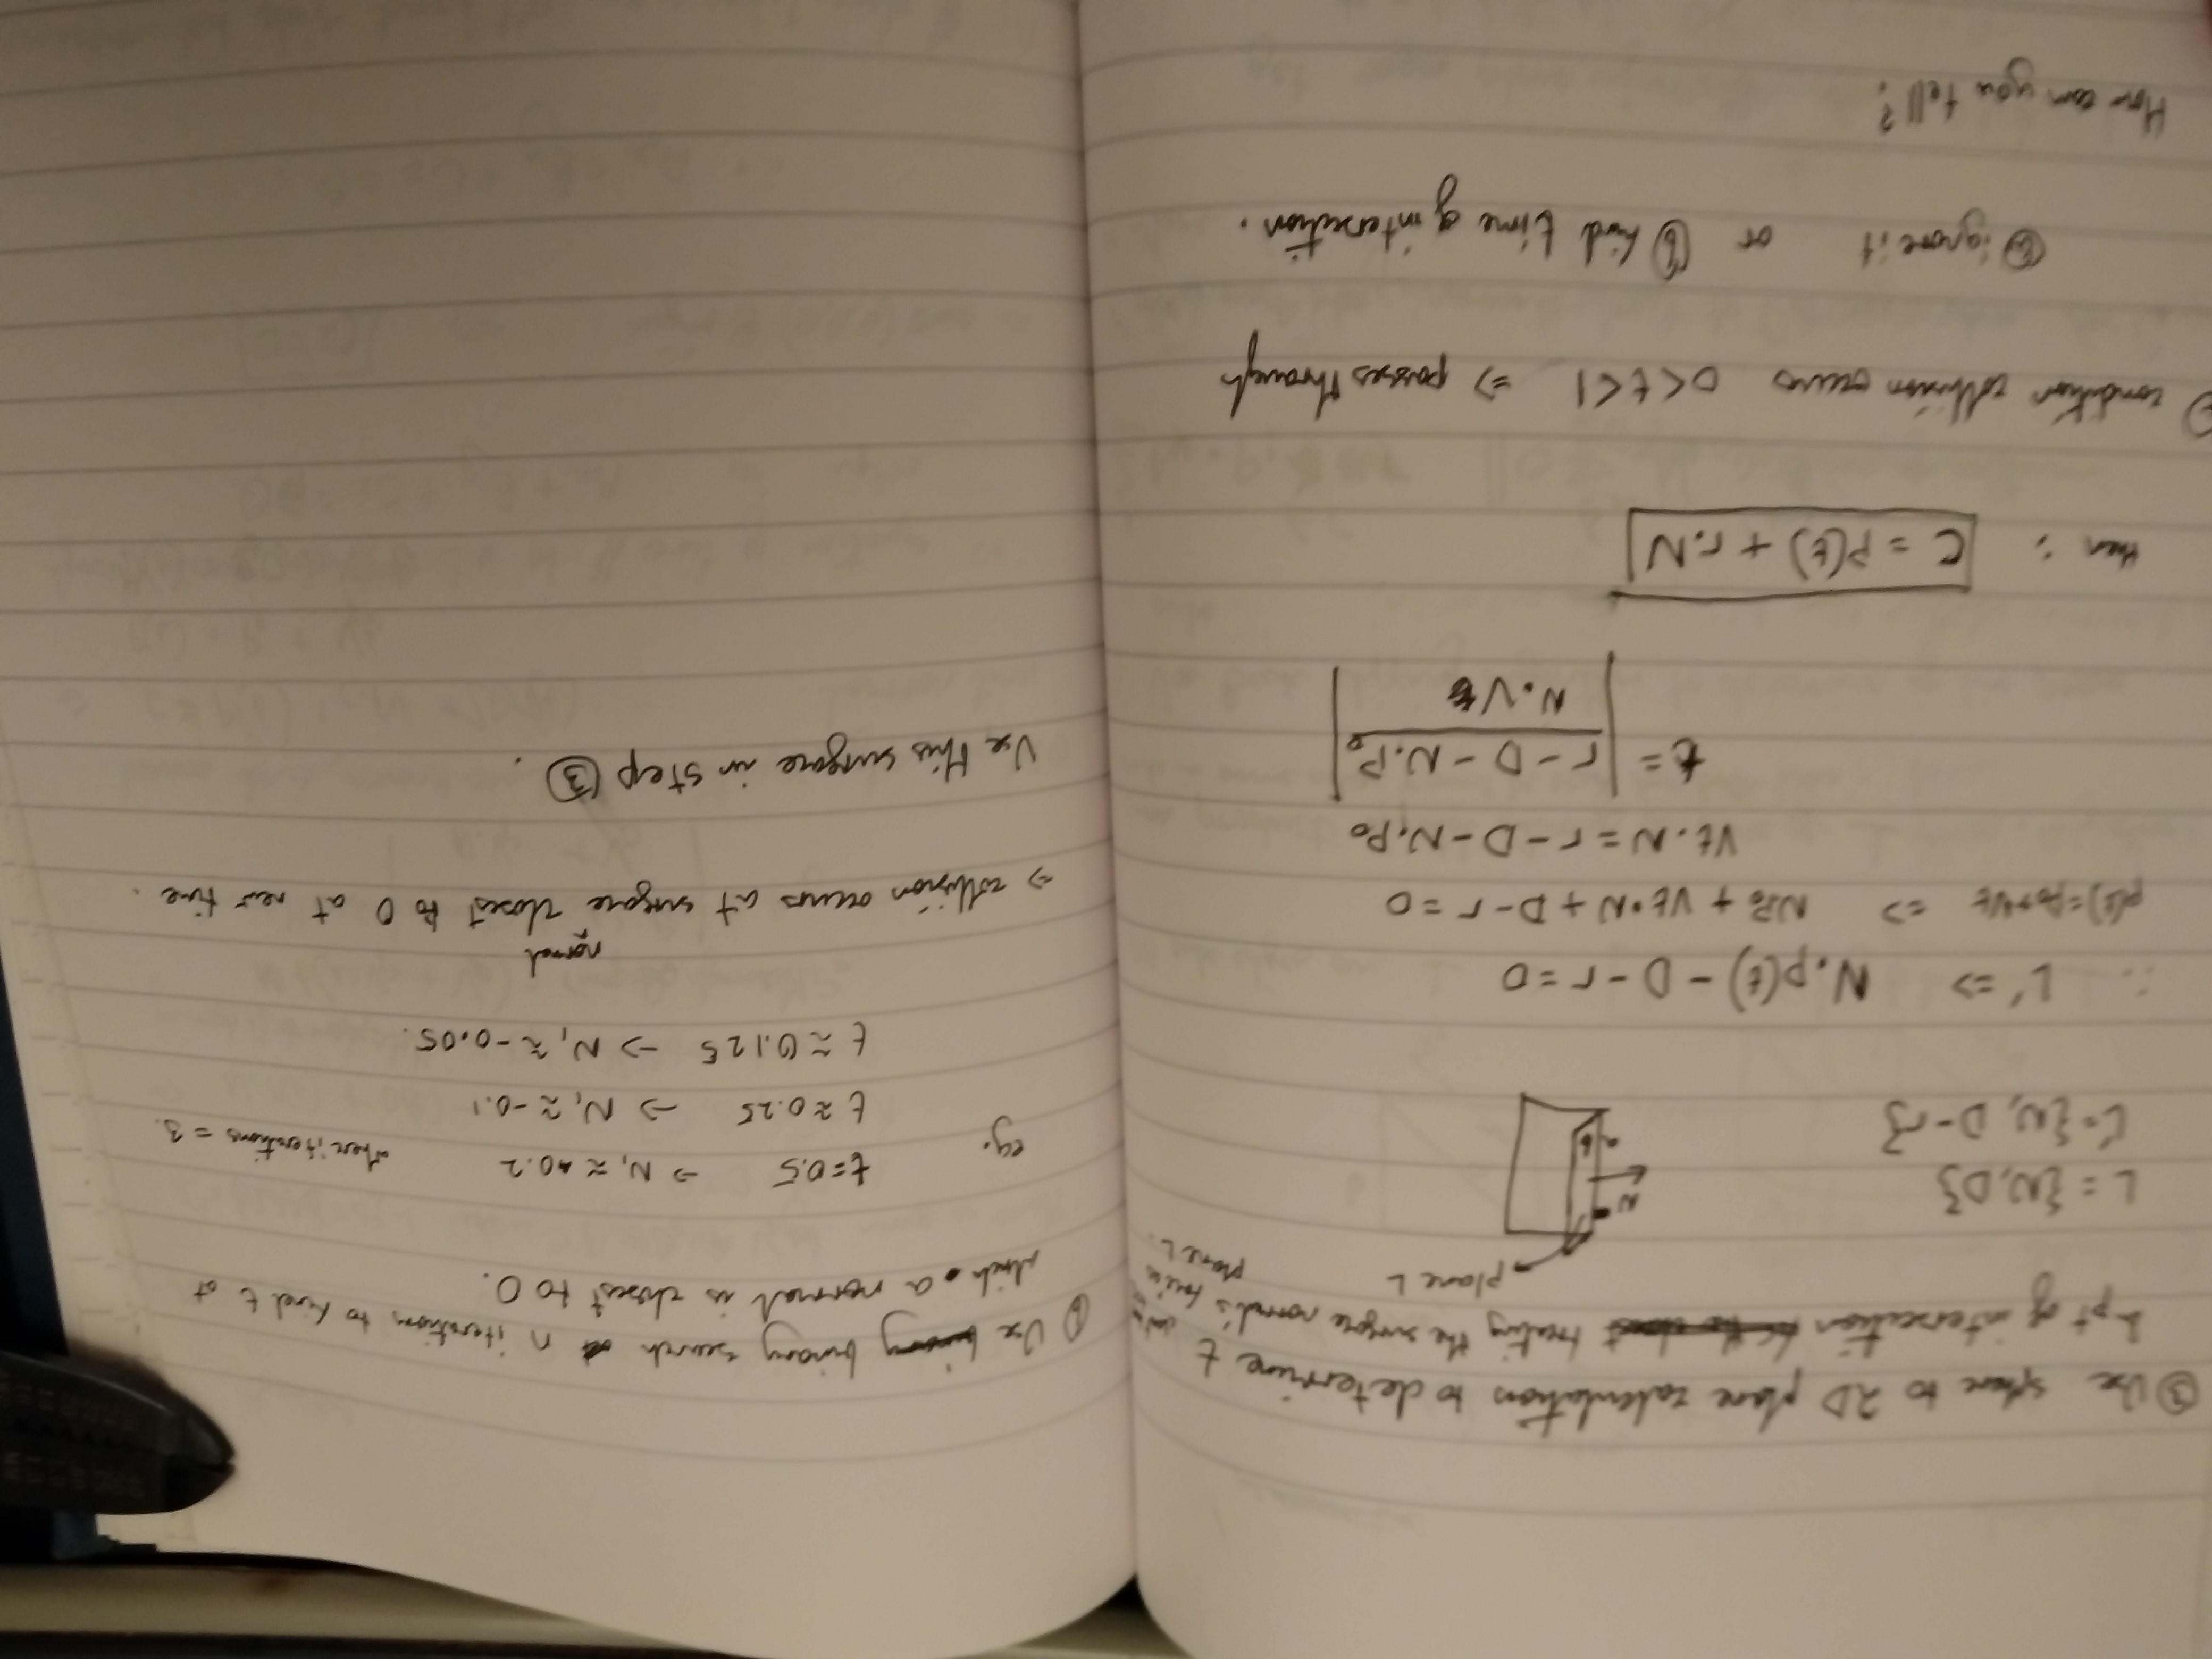 ③ Use sphere to 2D plane calculation to determine t
& pt of intersection treating the surface normal's face as
plane L.
plane L
N
a b
L = {N, D}
L' = {N, D-r}
∴ L' => N.p(t) - D - r = 0
p(t) = p₀+Vt => N.P₀ + Vt•N + D - r = 0
Vt.N = r - D - N.P₀
t = | r - D - N.P₀ / N.V |
then : C = P(t) + r.N
condition collision occurs 0<t<1 => passes through
ⓐ ignore it or ⓑ find time of intersection.
How can you tell?
ⓑ Use binary search n iterations to find t at
which a normal is closest to 0.
eg. t=0.5 -> N₁ ≈ -0.2 where iterations = 3.
t ≈ 0.25 -> N₁ ≈ -0.1
t ≈ 0.125 -> N₁ ≈ -0.05.
=> collision occurs at surface normal closest to 0 at new time.
Use this surface in step ③.